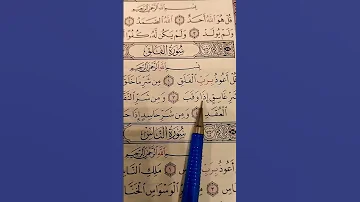 بِسْمِ اللَّهِ الرَّحْمَٰنِ الرَّحِيمِ
قُلْ هُوَ اللَّهُ أَحَدٌ ۝١ اللَّهُ الصَّمَدُ ۝٢
وَلَمْ يُولَدْ ۝٣ وَلَمْ يَكُن لَّهُ كُفُوًا
سُورَةُ الْفَلَقِ
بِسْمِ اللَّهِ الرَّحْمَٰنِ الرَّحِيمِ
قُلْ أَعُوذُ بِرَبِّ الْفَلَقِ ۝١ مِن شَرِّ مَا خَلَقَ
شَرِّ غَاسِقٍ إِذَا وَقَبَ ۝٣ وَمِن شَرِّ
الْعُقَدِ ۝٤ وَمِن شَرِّ حَاسِدٍ إِذَا
سُورَةُ النَّاسِ
بِسْمِ اللَّهِ الرَّحْمَٰنِ الرَّحِيمِ
أَعُوذُ بِرَبِّ النَّاسِ ۝١ مَلِكِ
۝٣ مِن شَرِّ الْوَسْوَاسِ